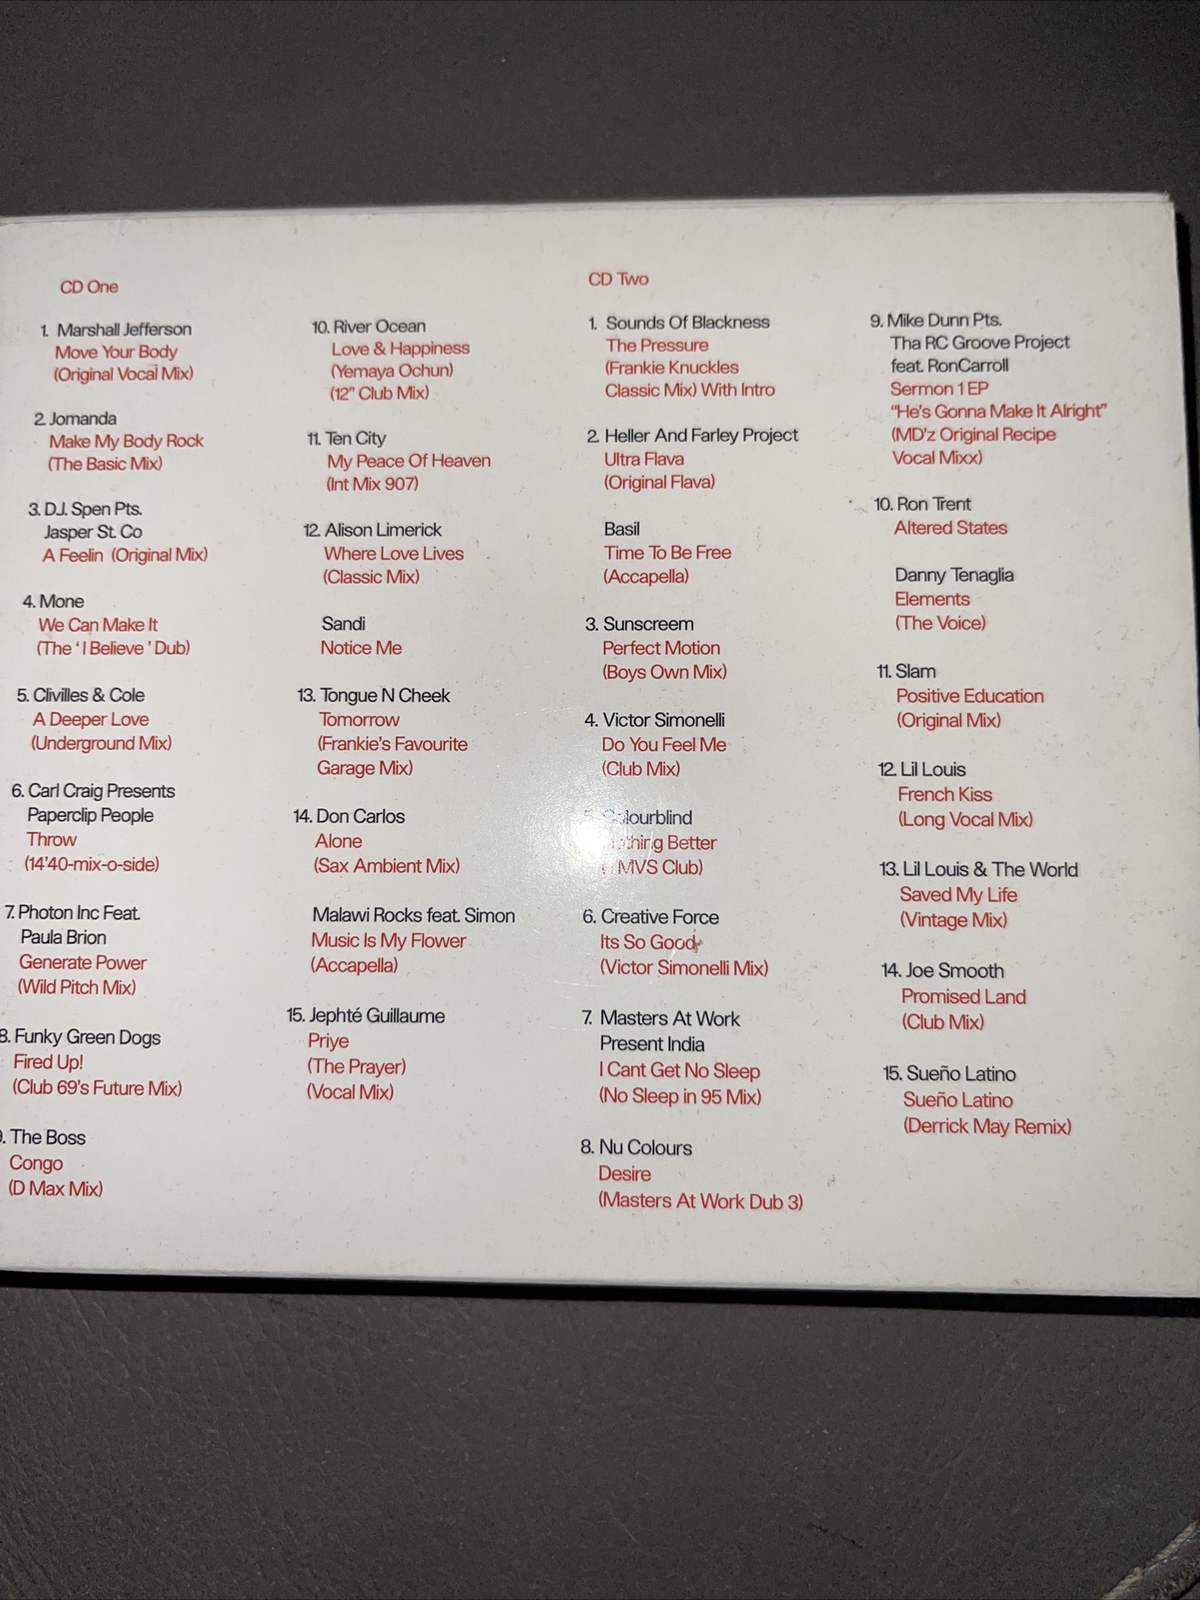 CD One
1. Marshall Jefferson
Move Your Body
(Original Vocal Mix)
2. Jomanda
Make My Body Rock
(The Basic Mix)
3. D.J. Spen Pts.
Jasper St. Co
A Feelin (Original Mix)
4. Mone
We Can Make It
(The ‘ I Believe ’ Dub)
5. Clivilles & Cole
A Deeper Love
(Underground Mix)
6. Carl Craig Presents
Paperclip People
Throw
(14’40-mix-o-side)
7. Photon Inc Feat.
Paula Brion
Generate Power
(Wild Pitch Mix)
8. Funky Green Dogs
Fired Up!
(Club 69’s Future Mix)
9. The Boss
Congo
(D Max Mix)
10. River Ocean
Love & Happiness
(Yemaya Ochun)
(12” Club Mix)
11. Ten City
My Peace Of Heaven
(Int Mix 907)
12. Alison Limerick
Where Love Lives
(Classic Mix)
Sandi
Notice Me
13. Tongue N Cheek
Tomorrow
(Frankie’s Favourite
Garage Mix)
14. Don Carlos
Alone
(Sax Ambient Mix)
Malawi Rocks feat. Simon
Music Is My Flower
(Accapella)
15. Jephté Guillaume
Priye
(The Prayer)
(Vocal Mix)
CD Two
1. Sounds Of Blackness
The Pressure
(Frankie Knuckles
Classic Mix) With Intro
2. Heller And Farley Project
Ultra Flava
(Original Flava)
Basil
Time To Be Free
(Accapella)
3. Sunscreem
Perfect Motion
(Boys Own Mix)
4. Victor Simonelli
Do You Feel Me
(Club Mix)
5. Colourblind
Better
MVS Club)
6. Creative Force
Its So Good
(Victor Simonelli Mix)
7. Masters At Work
Present India
I Cant Get No Sleep
(No Sleep in 95 Mix)
8. Nu Colours
Desire
(Masters At Work Dub 3)
9. Mike Dunn Pts.
Tha RC Groove Project
feat. RonCarroll
Sermon 1 EP
“He’s Gonna Make It Alright”
(MD’z Original Recipe
Vocal Mixx)
10. Ron Trent
Altered States
Danny Tenaglia
Elements
(The Voice)
11. Slam
Positive Education
(Original Mix)
12. Lil Louis
French Kiss
(Long Vocal Mix)
13. Lil Louis & The World
Saved My Life
(Vintage Mix)
14. Joe Smooth
Promised Land
(Club Mix)
15. Sueño Latino
Sueño Latino
(Derrick May Remix)